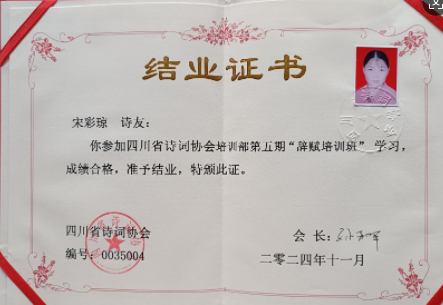 结业证书
宋彩琼 诗友：
你参加四川省诗词协会培训部第五期“辞赋培训班”学习，
成绩合格，准予结业，特颁此证。
四川省诗词协会
会 长：
编号：0035004
二零二四年十一月